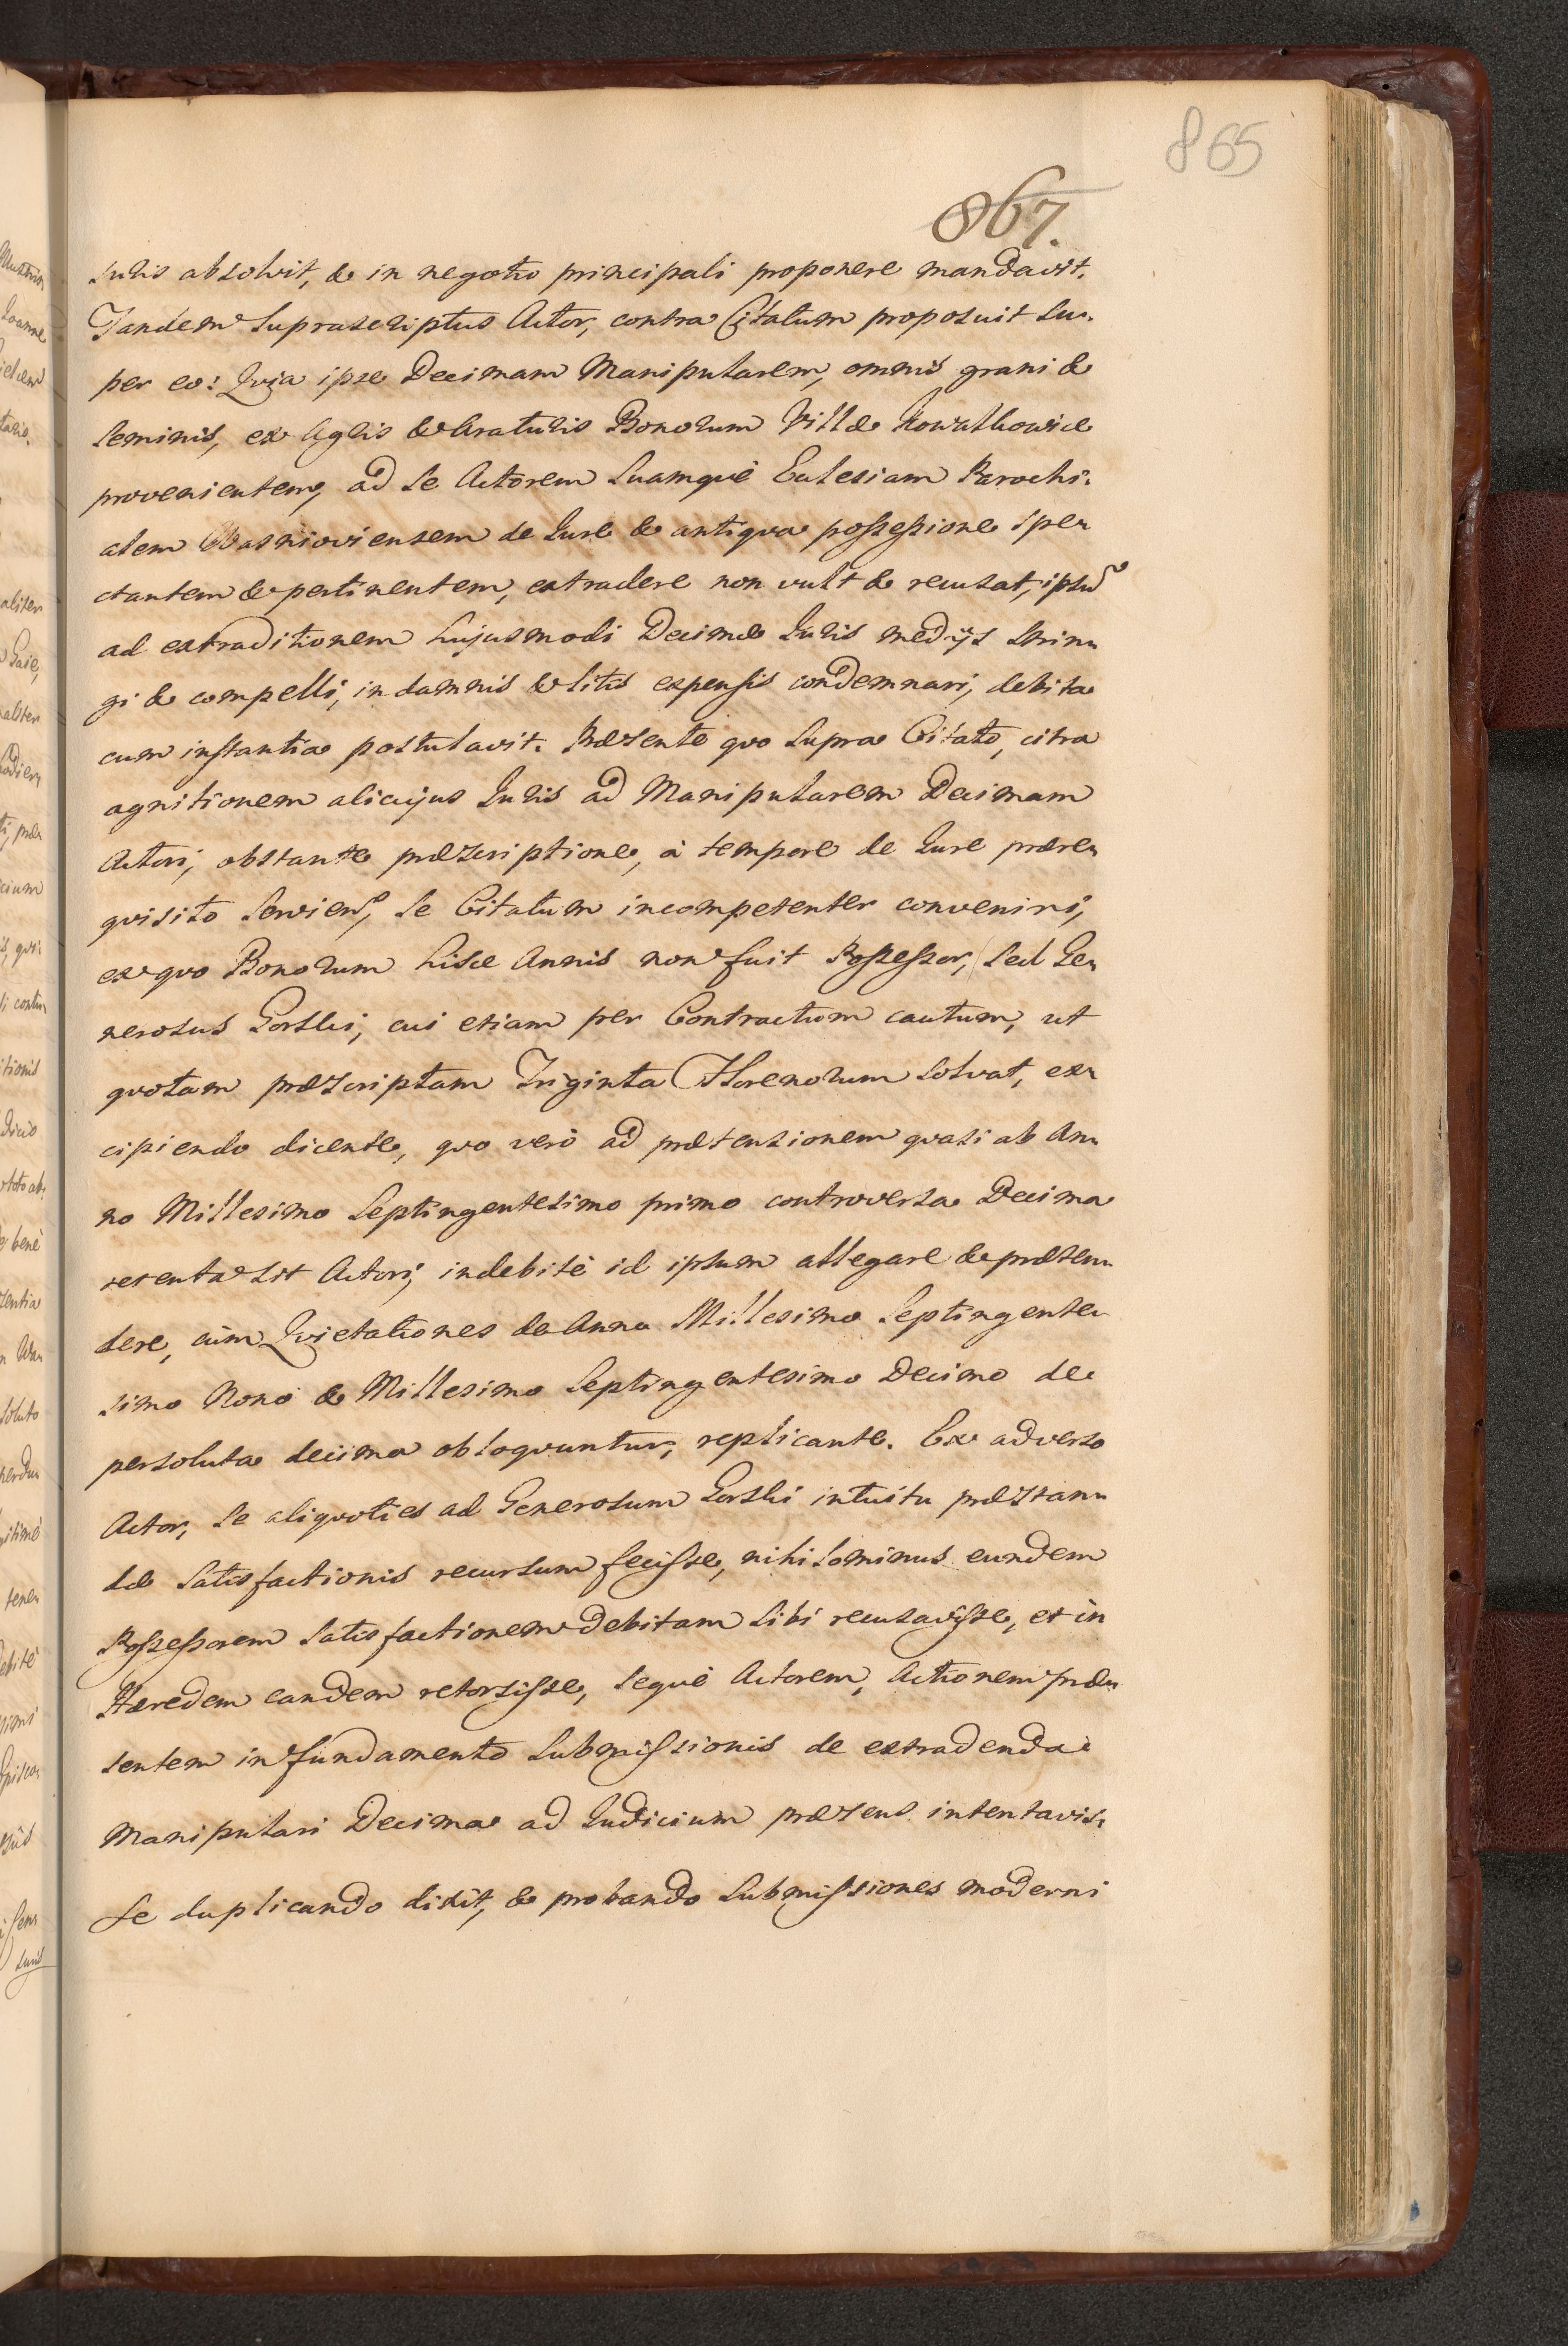 865
867.
Juris absolvit, & in negotio principali proponere mandavit.
Tandem Suprascriptus Actor, contra Citatum proposuit Su-
per eo: Quia ipse Decimam Manipularem, omnis grani &
Seminis, ex Agris & Araturis Bonorum Villæ Kowalkowice
provenientem, ad Se Actorem Suamque Eclesiam Parochi-
alem Wasnioviensem de Jure & antiqva possessione Spe-
ctantem & pertinentem, extradere non vult & recusat, ipsũ
ad extraditionem hujusmodi Decimæ Juris medijs Strin-
gi & compelli, in damnis & litis expensis condemnari, debita
cum instantia postulavit. Præsente qvo Supra Citato, citra
agnitionem alicujus Juris ad Manipularem Decimam
Actori, obstante præscriptione, à tempore de Jure prære-
qvisito Servien, Se Citatum incompetenter conveniri,
ex qvo Bonorum hisce Annis non fuit Possessor, Sed Ge-
nerosus Gorski, cui etiam per Contractum cautum, ut
qvotam præscriptam Triginta Florenorum Solvat, ex-
cipiendo dicente, qvo verò ad prætensionem qvasi ab An-
no Millesimo Septingentesimo primo controversa Decima
retenta sit Actori, indebitè id ipsum allegare & præten-
dere, cùm Qvietationes de Anno Millesimo Septingente-
simo Nono & Millesimo Septingentesimo Decimo de
persoluta decima obloqvuntur, replicante. Ex adverso
Actor, Se aliqvoties ad Generosum Gorski intuitu præstan-
dæ Satisfactionis recursum fecisse, nihilominus eundem
Possessorem Satisfactionem Debitam Sibi recusavisse, et in
Hæredem eandem retorsisse, Seqve Actorem, Actionem præ-
sentem in fundamento Submissionis de extradenda
Manipulari Decima ad Judicium præsens intentavis-
Se duplicando dixit, & probando Submissiones moderni